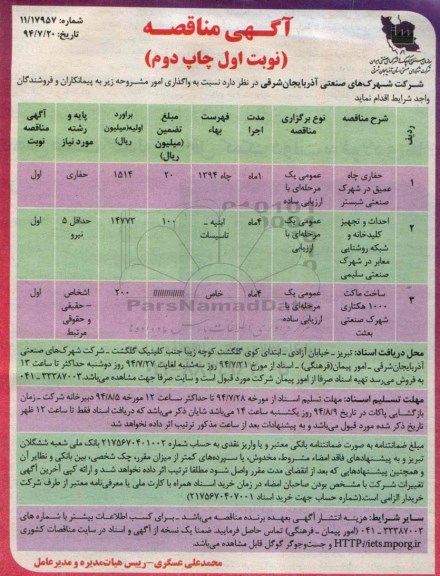 شماره: ۱۱/۱۷۹۵۷
تاریخ: ۹۴/۷/۲۰
آگهی مناقصه
(نوبت اول چاپ دوم)
شرکت شهرک‌های صنعتی آذربایجان‌شرقی در نظر دارد نسبت به واگذاری امور مشروحه زیر به پیمانکاران و فروشندگان
واجد شرایط اقدام نماید
ردیف | شرح مناقصه | نوع برگزاری مناقصه | مدت اجرا | فهرست بهاء | مبلغ تضمین (میلیون ریال) | براورد اولیه(میلیون ریال) | پایه و رشته مورد نیاز | آگهی مناقصه نوبت
۱ | حفاری چاه عمیق در شهرک صنعتی شبستر | عمومی یک مرحله‌ای با ارزیابی ساده | ۱ماه | چاه ۱۳۹۴ | ۲۰ | ۱۵۱۴ | حفاری | اول
۲ | احداث و تجهیز کلیدخانه و شبکه روشنایی معابر در شهرک صنعتی سلیمی | عمومی یک مرحله‌ای با ارزیابی | ۴ماه | ابنیه ـ تاسیسات | ۱۰۰ | ۱۴۷۷۳ | حداقل ۵ نیرو | اول
۳ | ساخت ماکت ۱۰۰۰ هکتاری شهرک صنعتی بعثت | عمومی یک مرحله‌ای با ارزیابی ساده | ۴ماه | خاص | ////////////// | ۲۰۰ | اشخاص – حقیقی و حقوقی مرتبط | اول
ParsNamadData
محل دریافت اسناد: تبریز ـ خیابان آزادی ـ ابتدای کوی گلگشت کوچه زیبا جنب کلینیک گلگشت ـ شرکت شهرک‌های صنعتی
آذربایجان‌شرقی ـ امور پیمان(فرهنگی) ـ اسناد از مورخ ۹۴/۷/۲۱ روز سه‌شنبه لغایت ۹۴/۷/۲۷ روز دوشنبه حداکثر تا ساعت ۱۳
به فروش می‌رسد تهیه اسناد صرفا از امور پیمان شرکت مورد قبول است و سایت صرفا جهت مشاهده می‌باشد.۳۳۳۸۷۰۰۳-۰۴۱
مهلت تسلیم اسناد: مهلت تسلیم اسناد از مورخه ۹۴/۷/۲۸ تا حداکثر ساعت ۱۲ مورخه ۹۴/۸/۵ دبیرخانه شرکت ـ زمان
بازگشایی پاکات در تاریخ ۹۴/۸/۹ روز یکشنبه ساعت ۱۴ می‌باشد شایان ذکر می‌باشد که دریافت اسناد فقط تا ساعت ۱۲ ظهر
تاریخ ذکر شده مورد قبول می‌باشد و به پیشنهادات بعد از ساعت مذکور ترتیب اثر داده نخواهد شد
مبلغ ضمانتنامه به صورت ضمانتنامه بانکی معتبر و یا واریز نقدی به حساب شماره ۲۱۷۵۶۷۰۴۰۱۰۰۲ بانک ملی شعبه ششگلان
تبریز و به پیشنهادهای فاقد امضاء مشروط، مخدوش، یا سپرده‌های کمتر از میزان مقرر، چک شخصی، بین بانکی و نظایر آن
و همچنین پیشنهادهایی که بعد از انقضای مدت مقرر واصل شود مطلقا ترتیب اثر داده نخواهد شد و ارائه کپی آخرین آگهی
تغییرات شرکت با مشخص بودن صاحبان امضاء در زمان خرید اسناد همراه با کارت ملی یا معرفی‌نامه معتبر از طرف شرکت
خریدار الزامی است(شماره حساب جهت خرید اسناد ۲۱۷۵۶۷۰۴۰۷۰۰۱)
سایر شرایط: هزینه انتشار آگهی بعهده برنده مناقصه می‌باشد ـ برای کسب اطلاعات بیشتر با شماره های
۳۳۳۸۷۰۰۳ـ۰۴۱ (امور پیمان ـ فرهنگی) تماس حاصل فرمایید ضمنا یک نسخه از آگهی و اسناد در سایت مناقصات کشوری
HTTP//iets.mporg.ir و جست‌وجوگر گوگل قابل مشاهده می‌باشد.
محمدعلی عسگری-رییس هیات‌مدیره و مدیرعامل